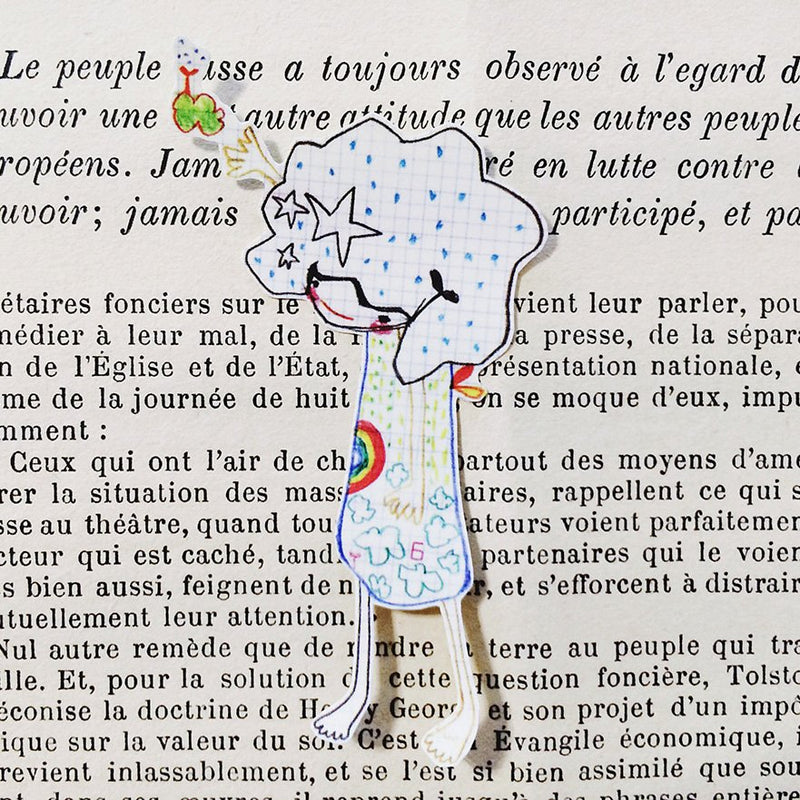 Le peuple usse a toujours observé à l'egard d
uvoir une autre attitude que les autres peuple
ropéens. Jam ré en lutte contre
uvoir; jamais participé, et pa
étaires fonciers sur le vient leur parler, pou
médier à leur mal, de la a presse, de la sépara
n de l'Église et de l'État, présentation nationale, e
me de la journée de huit on se moque d'eux, impu
mment :
Ceux qui ont l'air de ch partout des moyens d'amé
rer la situation des mass aires, rappellent ce qui s
sse au théâtre, quand tou ateurs voient parfaitemen
cteur qui est caché, tand partenaires qui le voien
s bien aussi, feignent de n r, et s'efforcent à distrair
utuellement leur attention.
6
Nul autre remède que de rendre terre au peuple qui tra
lle. Et, pour la solution d cette question foncière, Tolsto
éconise la doctrine de He y Georg et son projet d'un impô
ique sur la valeur du sol. C'est Évangile économique, i
revient inlassablement, et se l'est si bien assimilé que sou
t, dans ses œuvres, il reprend jusqu'à des phrases entière